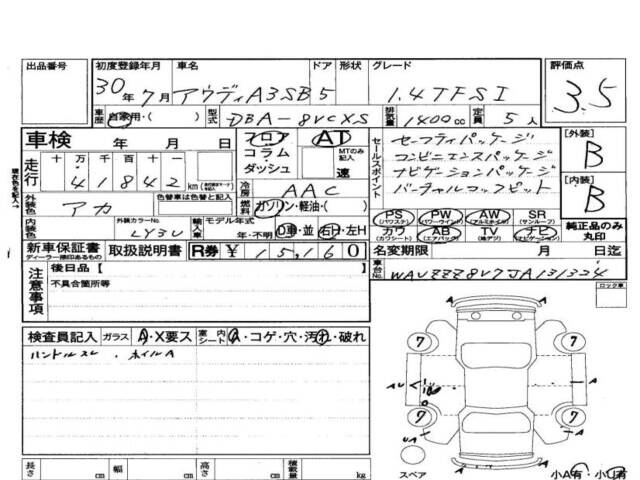 出品番号 初度登録年月 車名 ドア 形状 グレード 評価点
30年7月 アウディA3SB 5 1.4TFSI 3.5
車歴 自家用・( ) 型式 DBA-8VCXS 排気量 1400cc 定員 5人
車検 年 月 日 フロア コラム・ダッシュ AT MTのみ記入 速
セールスポイント
セーフティパッケージ
コンビニエンスパッケージ
ナビゲーションパッケージ
バーチャルコックピット
[外装] B
[内装] B
走行 十 万 千 百 十 一
41842 km
冷房 AAC
外装色 アカ 色替車は色替と記入 燃料 ガソリン・軽油・( )
内装色 外装カラーNo. LY3U 輸入車 モデル年式 年・不明 D車・並 右H・左H
PS (パワステ) PW (パワーウインド) AW (アルミホイル) SR (サンルーフ)
カワ (カワシート) AB (エアバック) TV (地デジ) ナビ (ナビゲーション)
純正品のみ丸印
新車保証書 ディーラー捺印あるもの 取扱説明書 R券 ¥15,160 名変期限 年 月 日迄
車台No. WAUZZZ8V7JA131324
ロック車
注意事項 後日品 [ ]
不具合箇所等
検査員記入 ガラス A・X要ス 室内シート A・コゲ・穴・汚れ・破れ
ハンドルスレ・ホイルA
7 7
AU A
7 7
UA
スペア A 小A有・小U有
長さ cm 幅 cm 高さ cm 積載量 kg